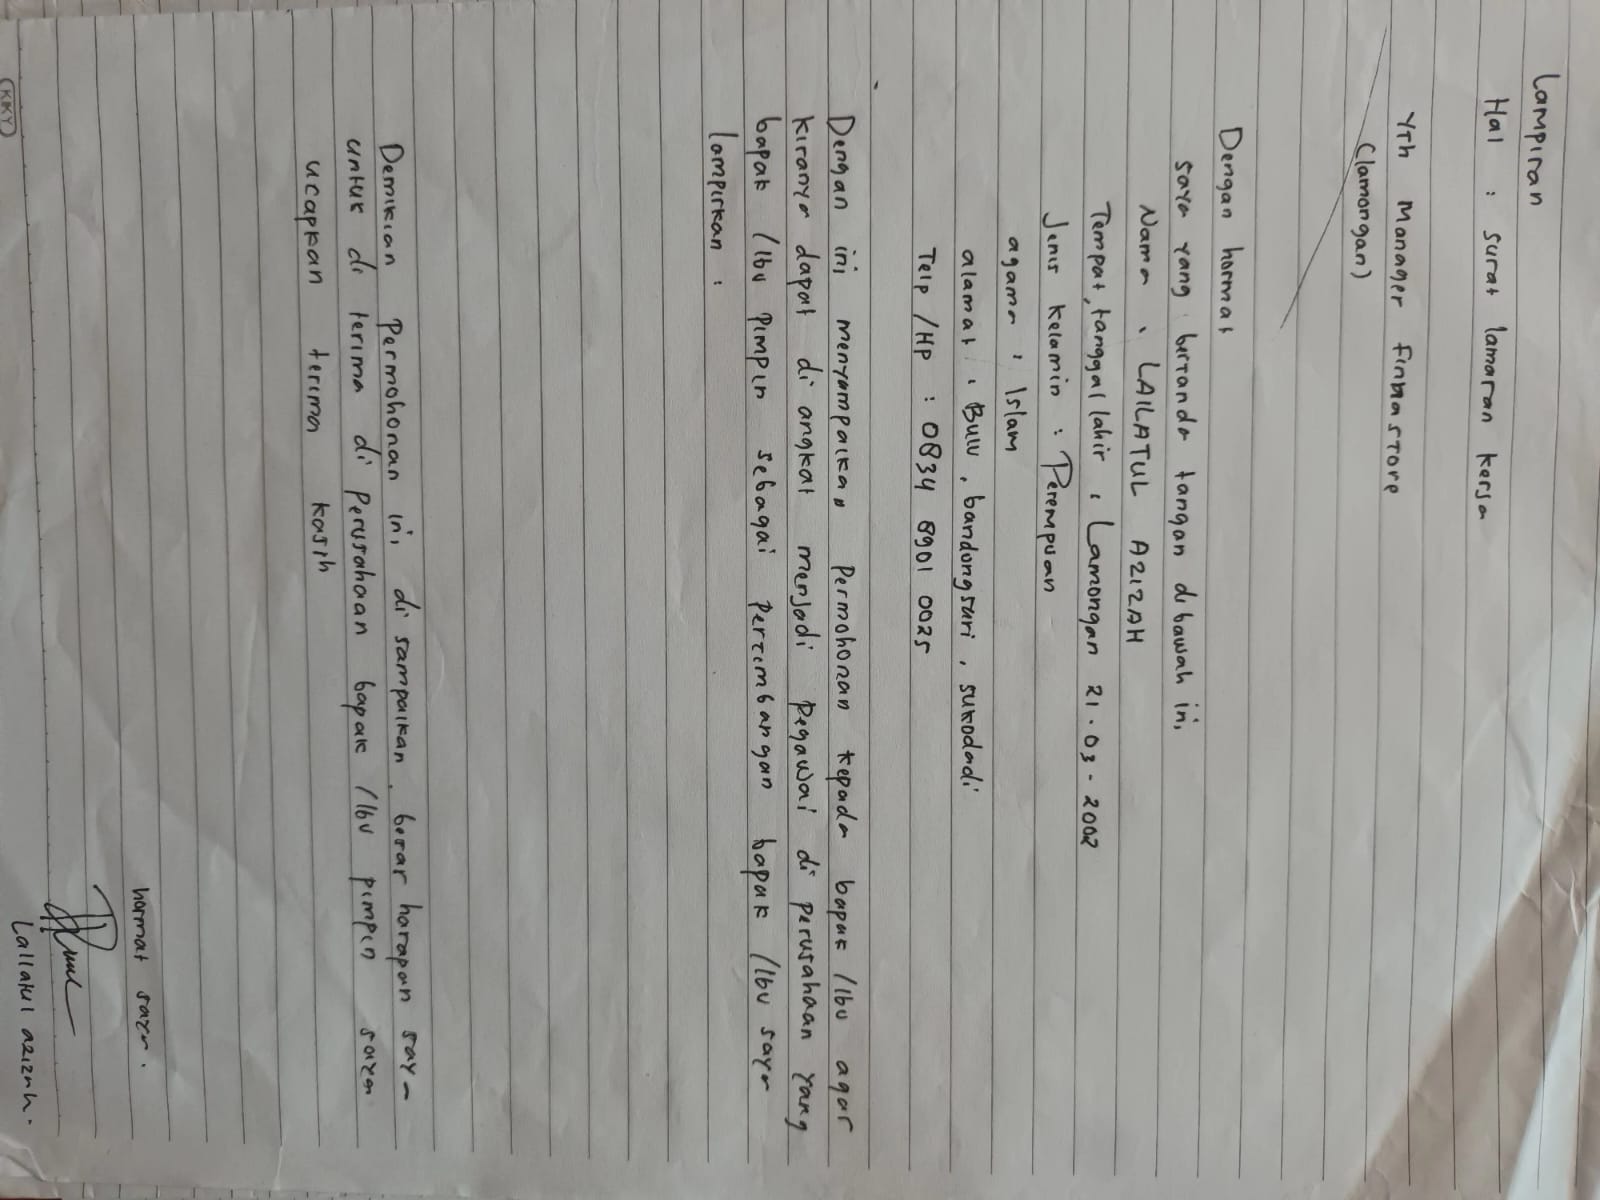 Lampiran
Hal : surat lamaran kersa
Yth Manager finna store
(lamongan)
Dengan hormat
saya yang bertanda tangan dibawah ini
Nama : LAILATUL AZIZAH
Tempat, tanggal lahir : Lamongan 21 - 03 - 2002
Jenis kelamin : Perempuan
agama : Islam
alamat : Bulu, bandungsari, sukodadi
Telp/HP : 0834 8901 0025
Dengan ini menyampaikan permohonan kepada bapak /Ibu agar
kiranya dapat di angkat menjadi pegawai di perusahaan yang
bapak /Ibu pimpin sebagai pertimbangan bapak /Ibu saya
lampirkan :
Demikian permohonan ini di sampaikan, besar harapan saya
untuk di terima di perusahaan bapak /Ibu pimpin saya
ucapkan terima kasih
hormat saya.
Lailatul azizah.
KIKY